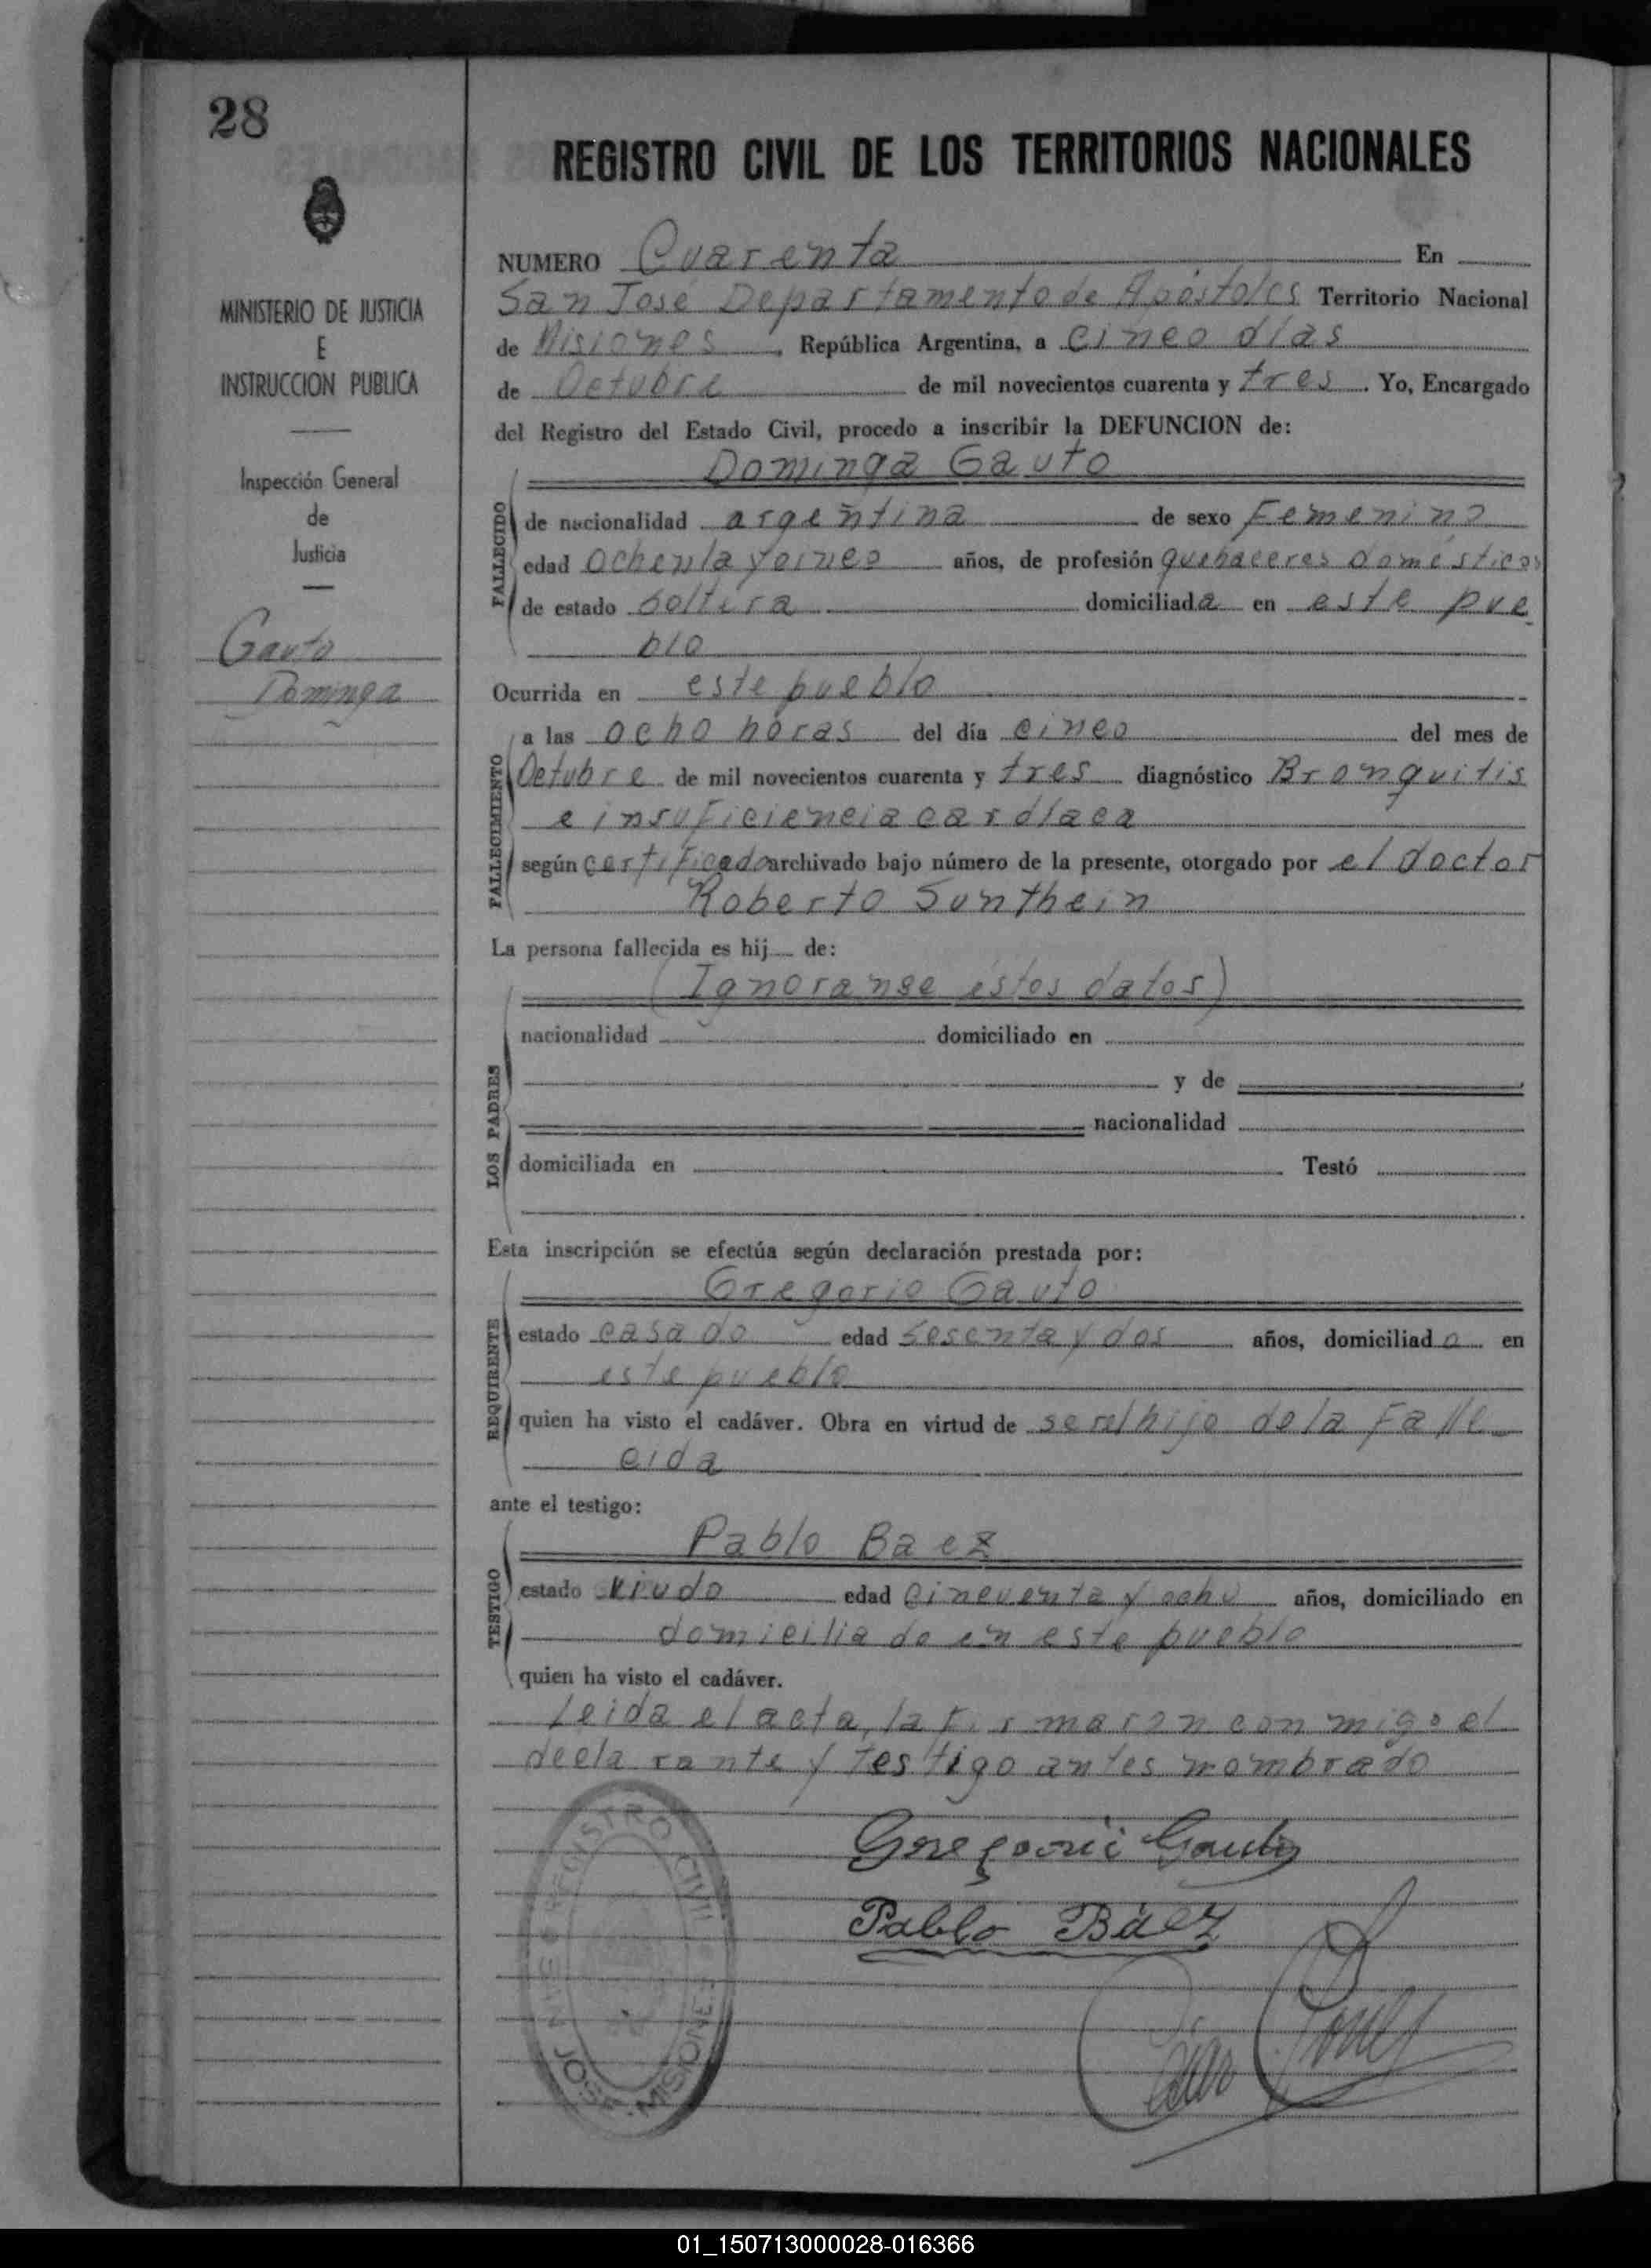 28
MINISTERIO DE JUSTICIA
E
INSTRUCCION PUBLICA
Inspección General
de
Justicia
Gauto
Dominga
REGISTRO CIVIL DE LOS TERRITORIOS NACIONALES
NUMERO Cuarenta En
San José Departamento de Apóstoles Territorio Nacional
de Misiones, República Argentina, a cinco días
de Octubre de mil novecientos cuarenta y tres. Yo, Encargado
del Registro del Estado Civil, procedo a inscribir la DEFUNCION de:
Dominga Gauto
FALLECIDO
de nacionalidad argentina de sexo Femenino
edad ochenta y cinco años, de profesión quehaceres domésticos
de estado soltera domiciliada en este pue
blo
Ocurrida en este pueblo
FALLECIMIENTO
a las ocho horas del día cinco del mes de
Octubre de mil novecientos cuarenta y tres diagnóstico Bronquitis
e insuficiencia cardíaca
según certificado archivado bajo número de la presente, otorgado por el doctor
Roberto Sunthein
La persona fallecida es hij de:
(Ignoranse estos datos)
LOS PADRES
nacionalidad domiciliado en
y de
nacionalidad
domiciliada en Testó
Esta inscripción se efectúa según declaración prestada por:
Gregorio Gauto
REQUIRENTE
estado casado edad sesenta y dos años, domiciliado en
este pueblo
quien ha visto el cadáver. Obra en virtud de ser el hijo de la Falle-
cida
ante el testigo:
Pablo Baez
TESTIGO
estado viudo edad cincuenta y ocho años, domiciliado en
domiciliado en este pueblo
quien ha visto el cadáver.
Leida el acta, la firmaron con migo el
declarante y testigo antes nombrado
Gregorio Gauto
Pablo Báez
REGISTRO CIVIL
SAN JOSE MISIONES
01_150713000028-016366